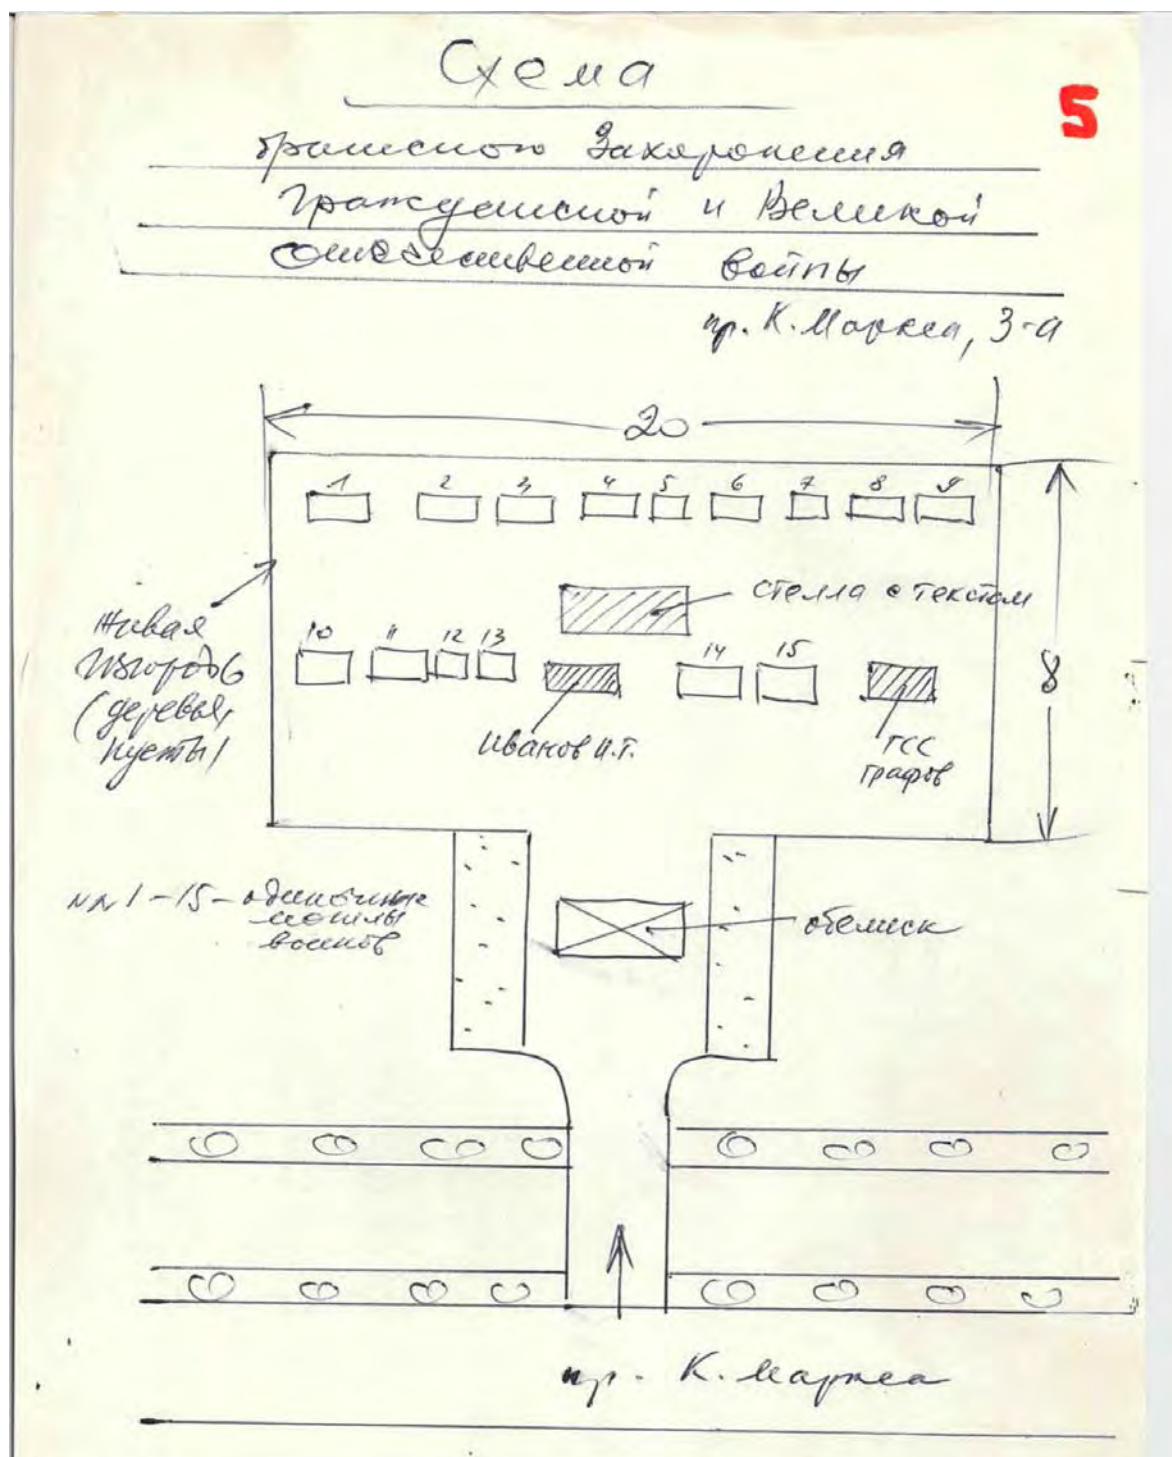 Схема
5
братского Захоронения
Гражданской и Великой
Отечественной войны
пр. К. Маркса, 3-а
20
1 2 3 4 5 6 7 8 9
стелла с текстом
Живая
изгородь
(деревья,
кусты)
10 11 12 13 14 15
8
Иванов И.Т.
ГСС
Графов
NN 1-15 - одиночные
могилы
воинов
обелиск
пр. К. Маркса